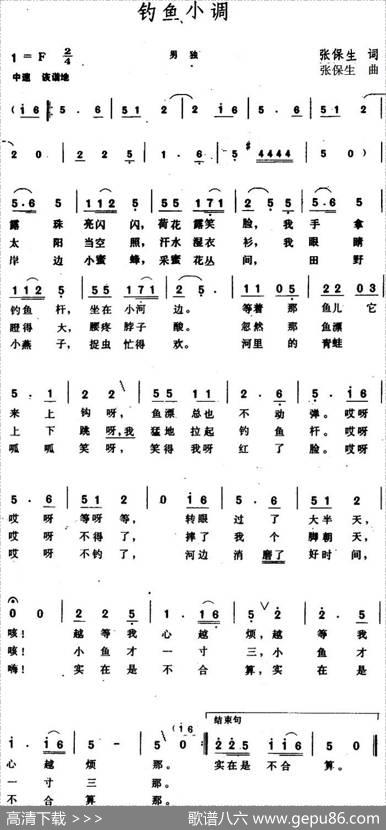 钓鱼小调
1=F 2/4 男独 张保生 词
中速 诙谐地 张保生 曲
(i6 5·6 5 51 2 5·6 5 51
2 0 2 25 1·6 5 5 4444 5 0)
5·6 5 112 2 5·5 171 2·5 5·6 5
露珠亮闪闪,荷花露笑脸,我手拿
太阳当空照,汗水湿衣衫,我眼睛
岸边小蜜蜂,采蜜花丛间,田野
钓鱼杆,坐在小河边。等着那鱼儿它
瞪得大,腰疼脖子酸。忽然那鱼漂
小燕子,捉虫忙得欢。河里的青蛙
5·1 2 2 55 11 2·6 5·i6
来上钩呀,鱼漂总也不动弹。哎呀
上下跳呀,我猛地拉起钓鱼杆。哎呀
呱呱笑呀,笑得我呀红了脸。哎呀
5·6 51 2 0 i6 5·6 51 2
哎呀等呀等,转眼过了大半天,
哎呀不得了,摔了我个脚朝天,
哎呀不钓了,河边消磨了好时间,
0 0 2 25 1·16 5 2 2 25
咳!越等我心越烦,越等我
咳!小鱼才一寸三,小鱼才
嗨!实在是不合算,实在是
结束句
心越烦那。实在是不合算。
一寸三那。
不合算那。
高清下载 >>> 歌谱八六 www.gepu86.com